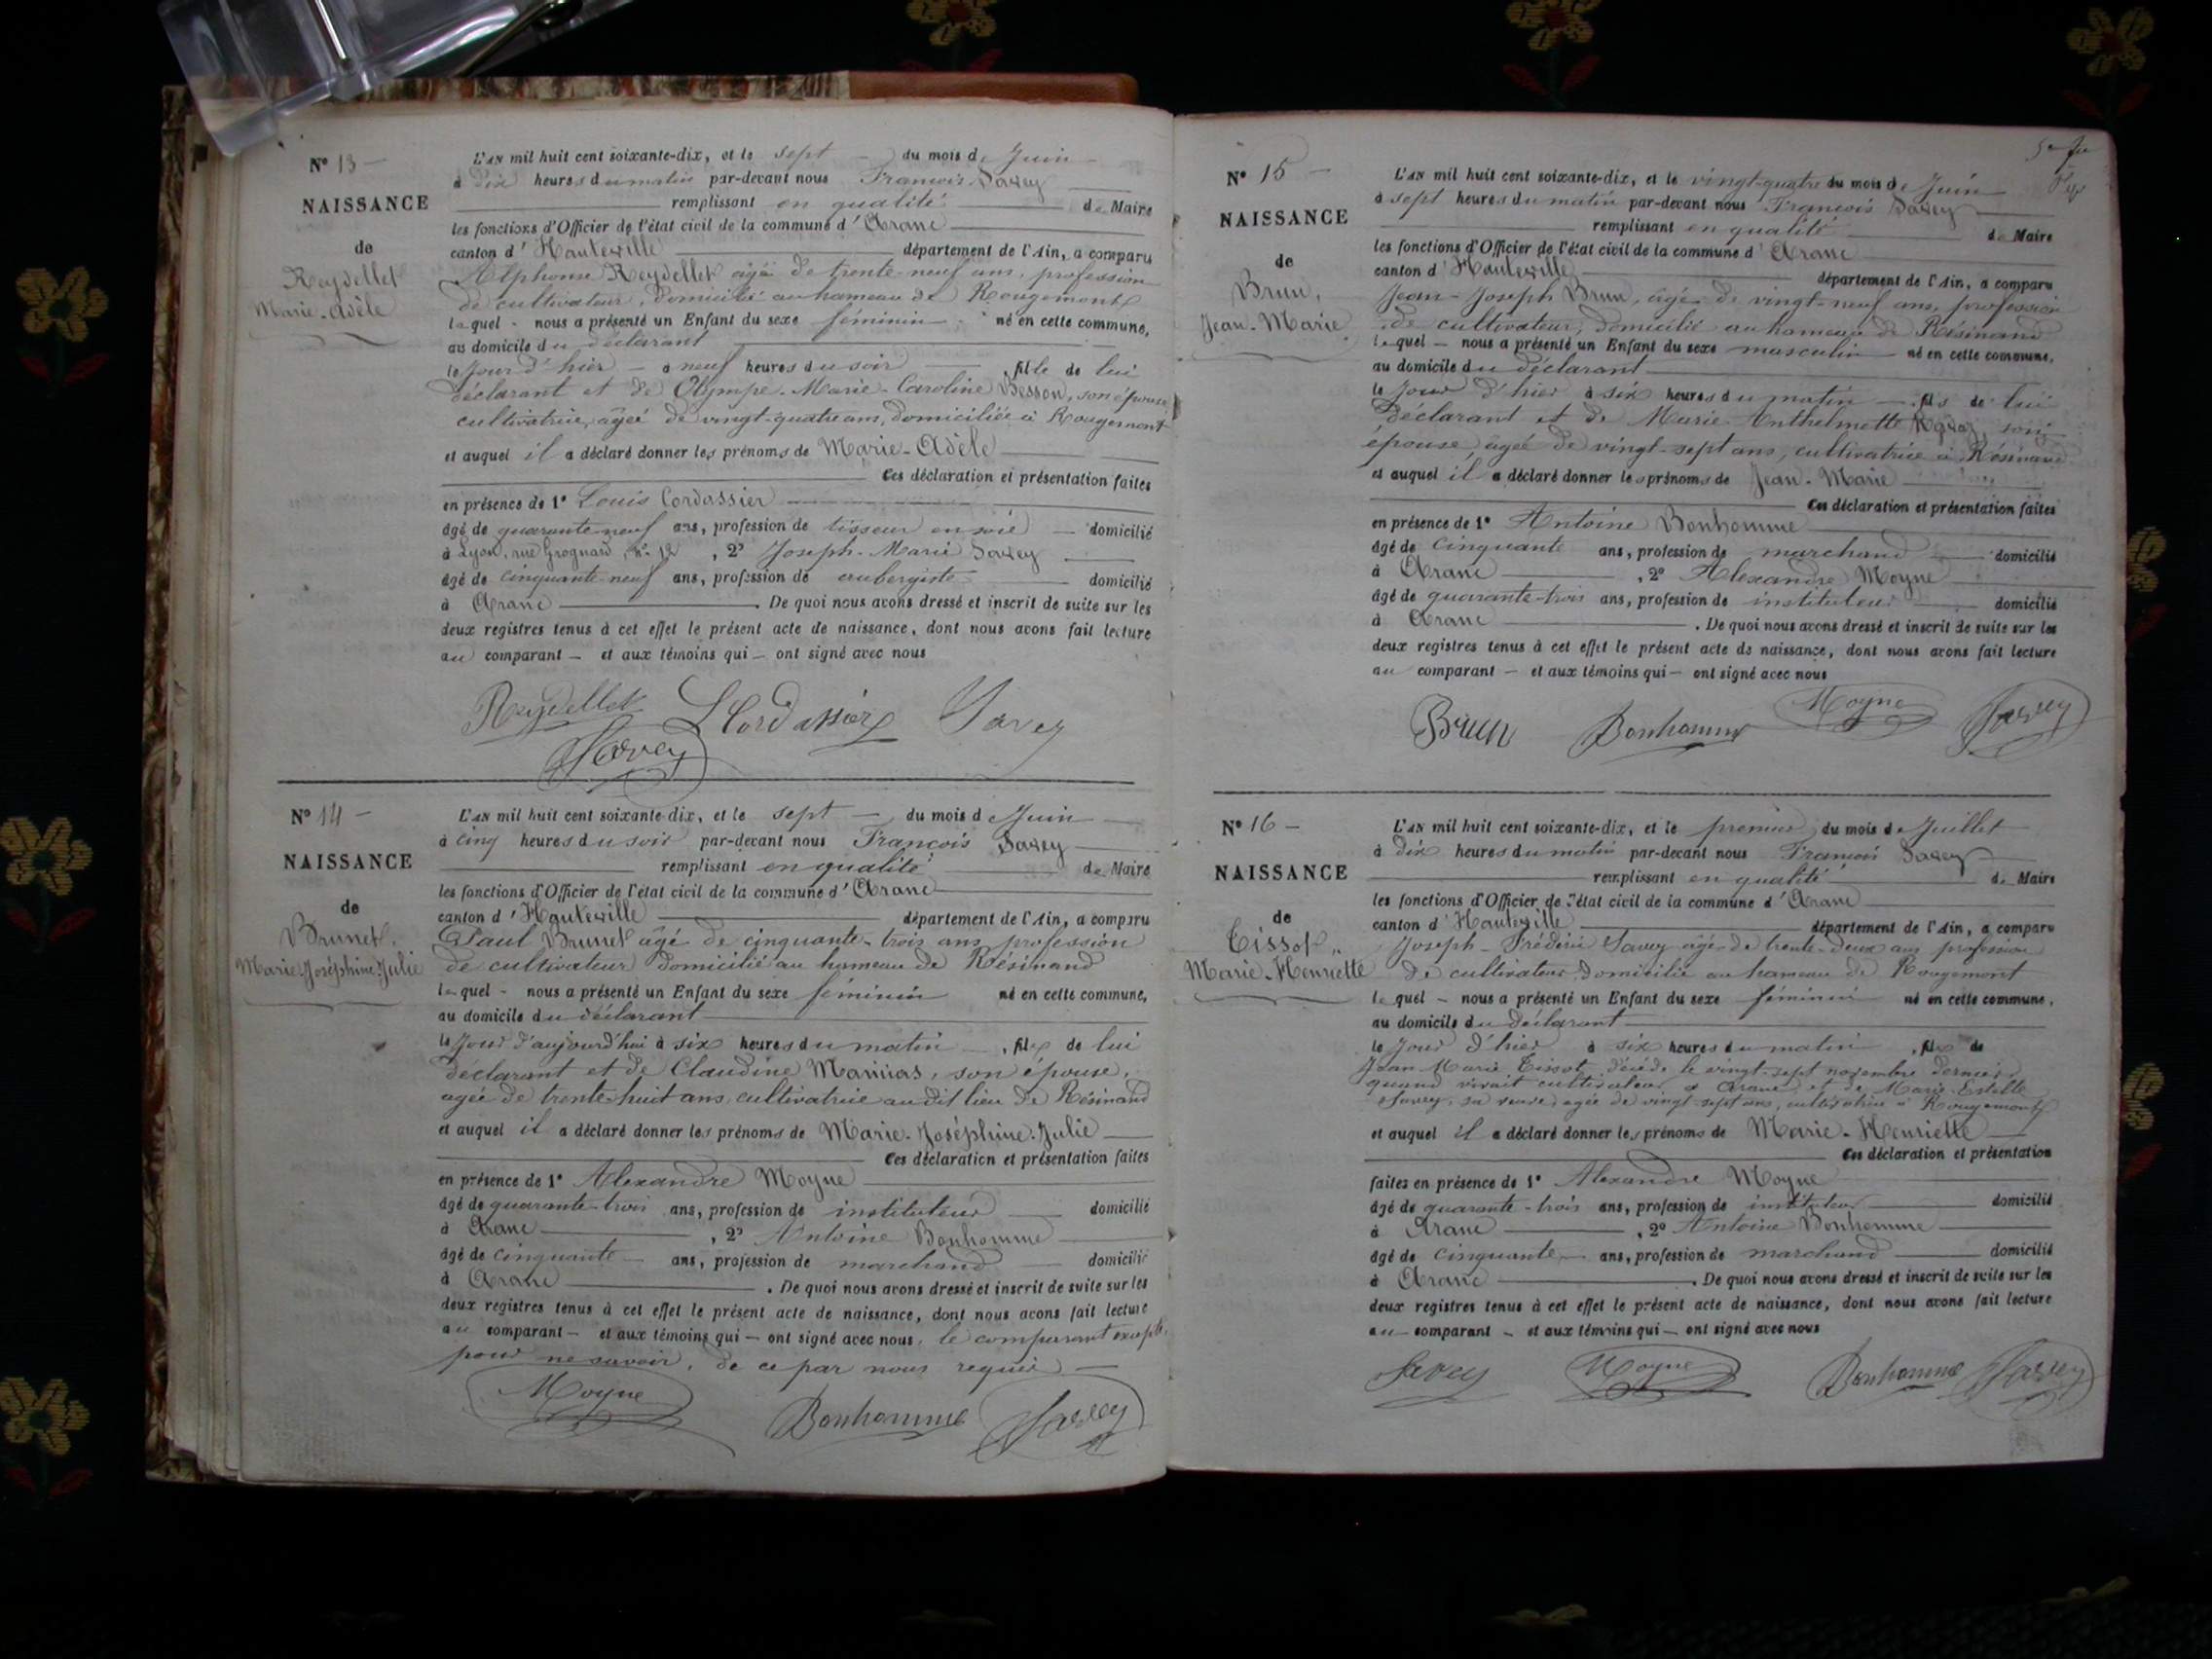 N° 13 —
NAISSANCE
de
Reydellet
Marie-Adèle
L'AN mil huit cent soixante-dix, et le sept — du mois de Juin
à dix heures du matin par-devant nous François Savey
remplissant en qualité de Maire
les fonctions d'Officier de l'état civil de la commune d'Aranc
canton d'Hauteville département de l'Ain, a comparu
Alphonse Reydellet âgé de trente-neuf ans, profession
de cultivateur, domicilié au hameau de Rougemont
lequel - nous a présenté un Enfant du sexe féminin né en cette commune,
au domicile du déclarant
le jour d'hier — à neuf heures du soir fille de lui
déclarant et de Olympe-Marie-Caroline Besson, son épouse
cultivatrice, âgée de vingt-quatre ans, domiciliée à Rougemont
et auquel il a déclaré donner les prénoms de Marie-Adèle
Ces déclaration et présentation faites
en présence de 1° Louis Cordassier
âgé de quarante-neuf ans, profession de tisseur en soie — domicilié
à Lyon, rue Grognard, n° 12, 2° Joseph-Marie Savey
âgé de cinquante-neuf ans, profession de aubergiste domicilié
à Aranc . De quoi nous avons dressé et inscrit de suite sur les
deux registres tenus à cet effet le présent acte de naissance, dont nous avons fait lecture
au comparant — et aux témoins qui — ont signé avec nous
Reydellet LCordassier Savey
Savey
N° 14 —
NAISSANCE
de
Brunet,
Marie-Joséphine-Julie
L'AN mil huit cent soixante-dix, et le sept — du mois de Juin
à cinq heures du soir par-devant nous François Savey
remplissant en qualité de Maire
les fonctions d'Officier de l'état civil de la commune d'Aranc
canton d'Hauteville département de l'Ain, a comparu
Paul Brunet âgé de cinquante-trois ans, profession
de cultivateur domicilié au hameau de Résinand
lequel - nous a présenté un Enfant du sexe féminin né en cette commune,
au domicile du déclarant
le jour d'aujourd'hui à six heures du matin —, fille de lui
déclarant et de Claudine, son épouse,
âgée de trente-huit ans, cultivatrice audit lieu de Résinand
et auquel il a déclaré donner les prénoms de Marie-Joséphine-Julie
Ces déclaration et présentation faites
en présence de 1° Alexandre Moyne
âgé de quarante-trois ans, profession de instituteur domicilié
à Aranc , 2° Antoine Bonhomme
âgé de cinquante ans, profession de marchand domicilié
à Aranc . De quoi nous avons dressé et inscrit de suite sur les
deux registres tenus à cet effet le présent acte de naissance, dont nous avons fait lecture
au comparant — et aux témoins qui — ont signé avec nous, le comparant excepté,
pour ne savoir, de ce par nous requis —
Moyne Bonhomme Savey
N° 15 —
NAISSANCE
de
Brun,
Jean-Marie
L'AN mil huit cent soixante-dix, et le vingt-quatre du mois de Juin
à sept heures du matin par-devant nous François Savey
remplissant en qualité de Maire
les fonctions d'Officier de l'état civil de la commune d'Aranc
canton d'Hauteville département de l'Ain, a comparu
Jean-Joseph Brun, âgé de vingt-neuf ans, profession
de cultivateur, domicilié au hameau de Résinand
lequel — nous a présenté un Enfant du sexe masculin né en cette commune,
au domicile du déclarant
le jour d'hier à six heures du matin —, fils de lui
déclarant et de Marie-Anthelmette, son
épouse, âgée de vingt-sept ans, cultivatrice à Résinand
et auquel il a déclaré donner les prénoms de Jean-Marie
Ces déclaration et présentation faites
en présence de 1° Antoine Bonhomme
âgé de cinquante ans, profession de marchand domicilié
à Aranc , 2° Alexandre Moyne
âgé de quarante-trois ans, profession de instituteur domicilié
à Aranc . De quoi nous avons dressé et inscrit de suite sur les
deux registres tenus à cet effet le présent acte de naissance, dont nous avons fait lecture
au comparant — et aux témoins qui — ont signé avec nous
Brun Bonhomme Moyne Savey
N° 16 —
NAISSANCE
de
Tissot,
Marie-Henriette
L'AN mil huit cent soixante-dix, et le premier du mois de Juillet
à dix heures du matin par-devant nous François Savey
remplissant en qualité de Maire
les fonctions d'Officier de l'état civil de la commune d'Aranc
canton d'Hauteville département de l'Ain, a comparu
Joseph-Frédéric Savey âgé de trente-deux ans profession
de cultivateur domicilié au hameau de Rougemont
lequel — nous a présenté un Enfant du sexe féminin né en cette commune,
au domicile du déclarant
le jour d'hier à six heures du matin , fille de
Jean-Marie Tissot, décédé le vingt-sept novembre dernier,
quand vivait cultivateur à Aranc, et de Marie-Estelle
Savey, sa veuve, âgée de vingt-sept ans, cultivatrice à Rougemont
et auquel il a déclaré donner les prénoms de Marie-Henriette
Ces déclaration et présentation
faites en présence de 1° Alexandre Moyne
âgé de quarante-trois ans, profession de instituteur domicilié
à Aranc , 2° Antoine Bonhomme
âgé de cinquante ans, profession de marchand domicilié
à Aranc . De quoi nous avons dressé et inscrit de suite sur les
deux registres tenus à cet effet le présent acte de naissance, dont nous avons fait lecture
au comparant — et aux témoins qui — ont signé avec nous
Savey Moyne Bonhomme Savey